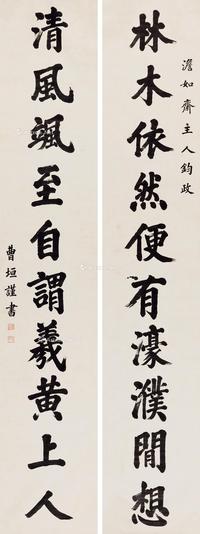 澹如齋主人鈞政
林木依然便有濠濮閒想
清風颯至自謂羲黃上人
曹垣謹書